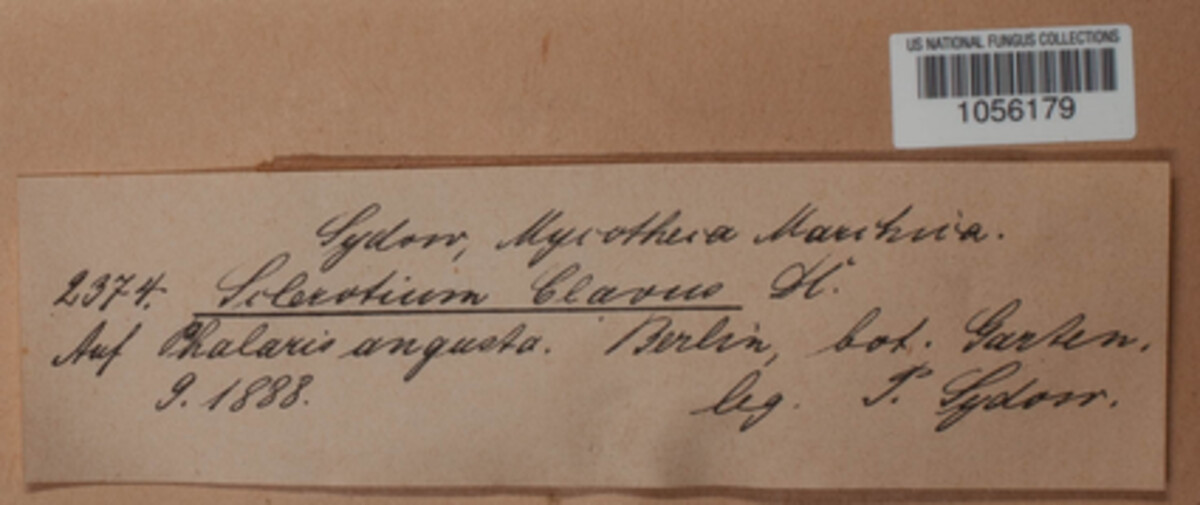 US NATIONAL FUNGUS COLLECTIONS
1056179
Sydow, Mycotheca Marchica.
2374. Sclerotium Clavus DC.
Auf Phalaris angusta. Berlin, bot. Garten.
9. 1888. leg. P. Sydow.